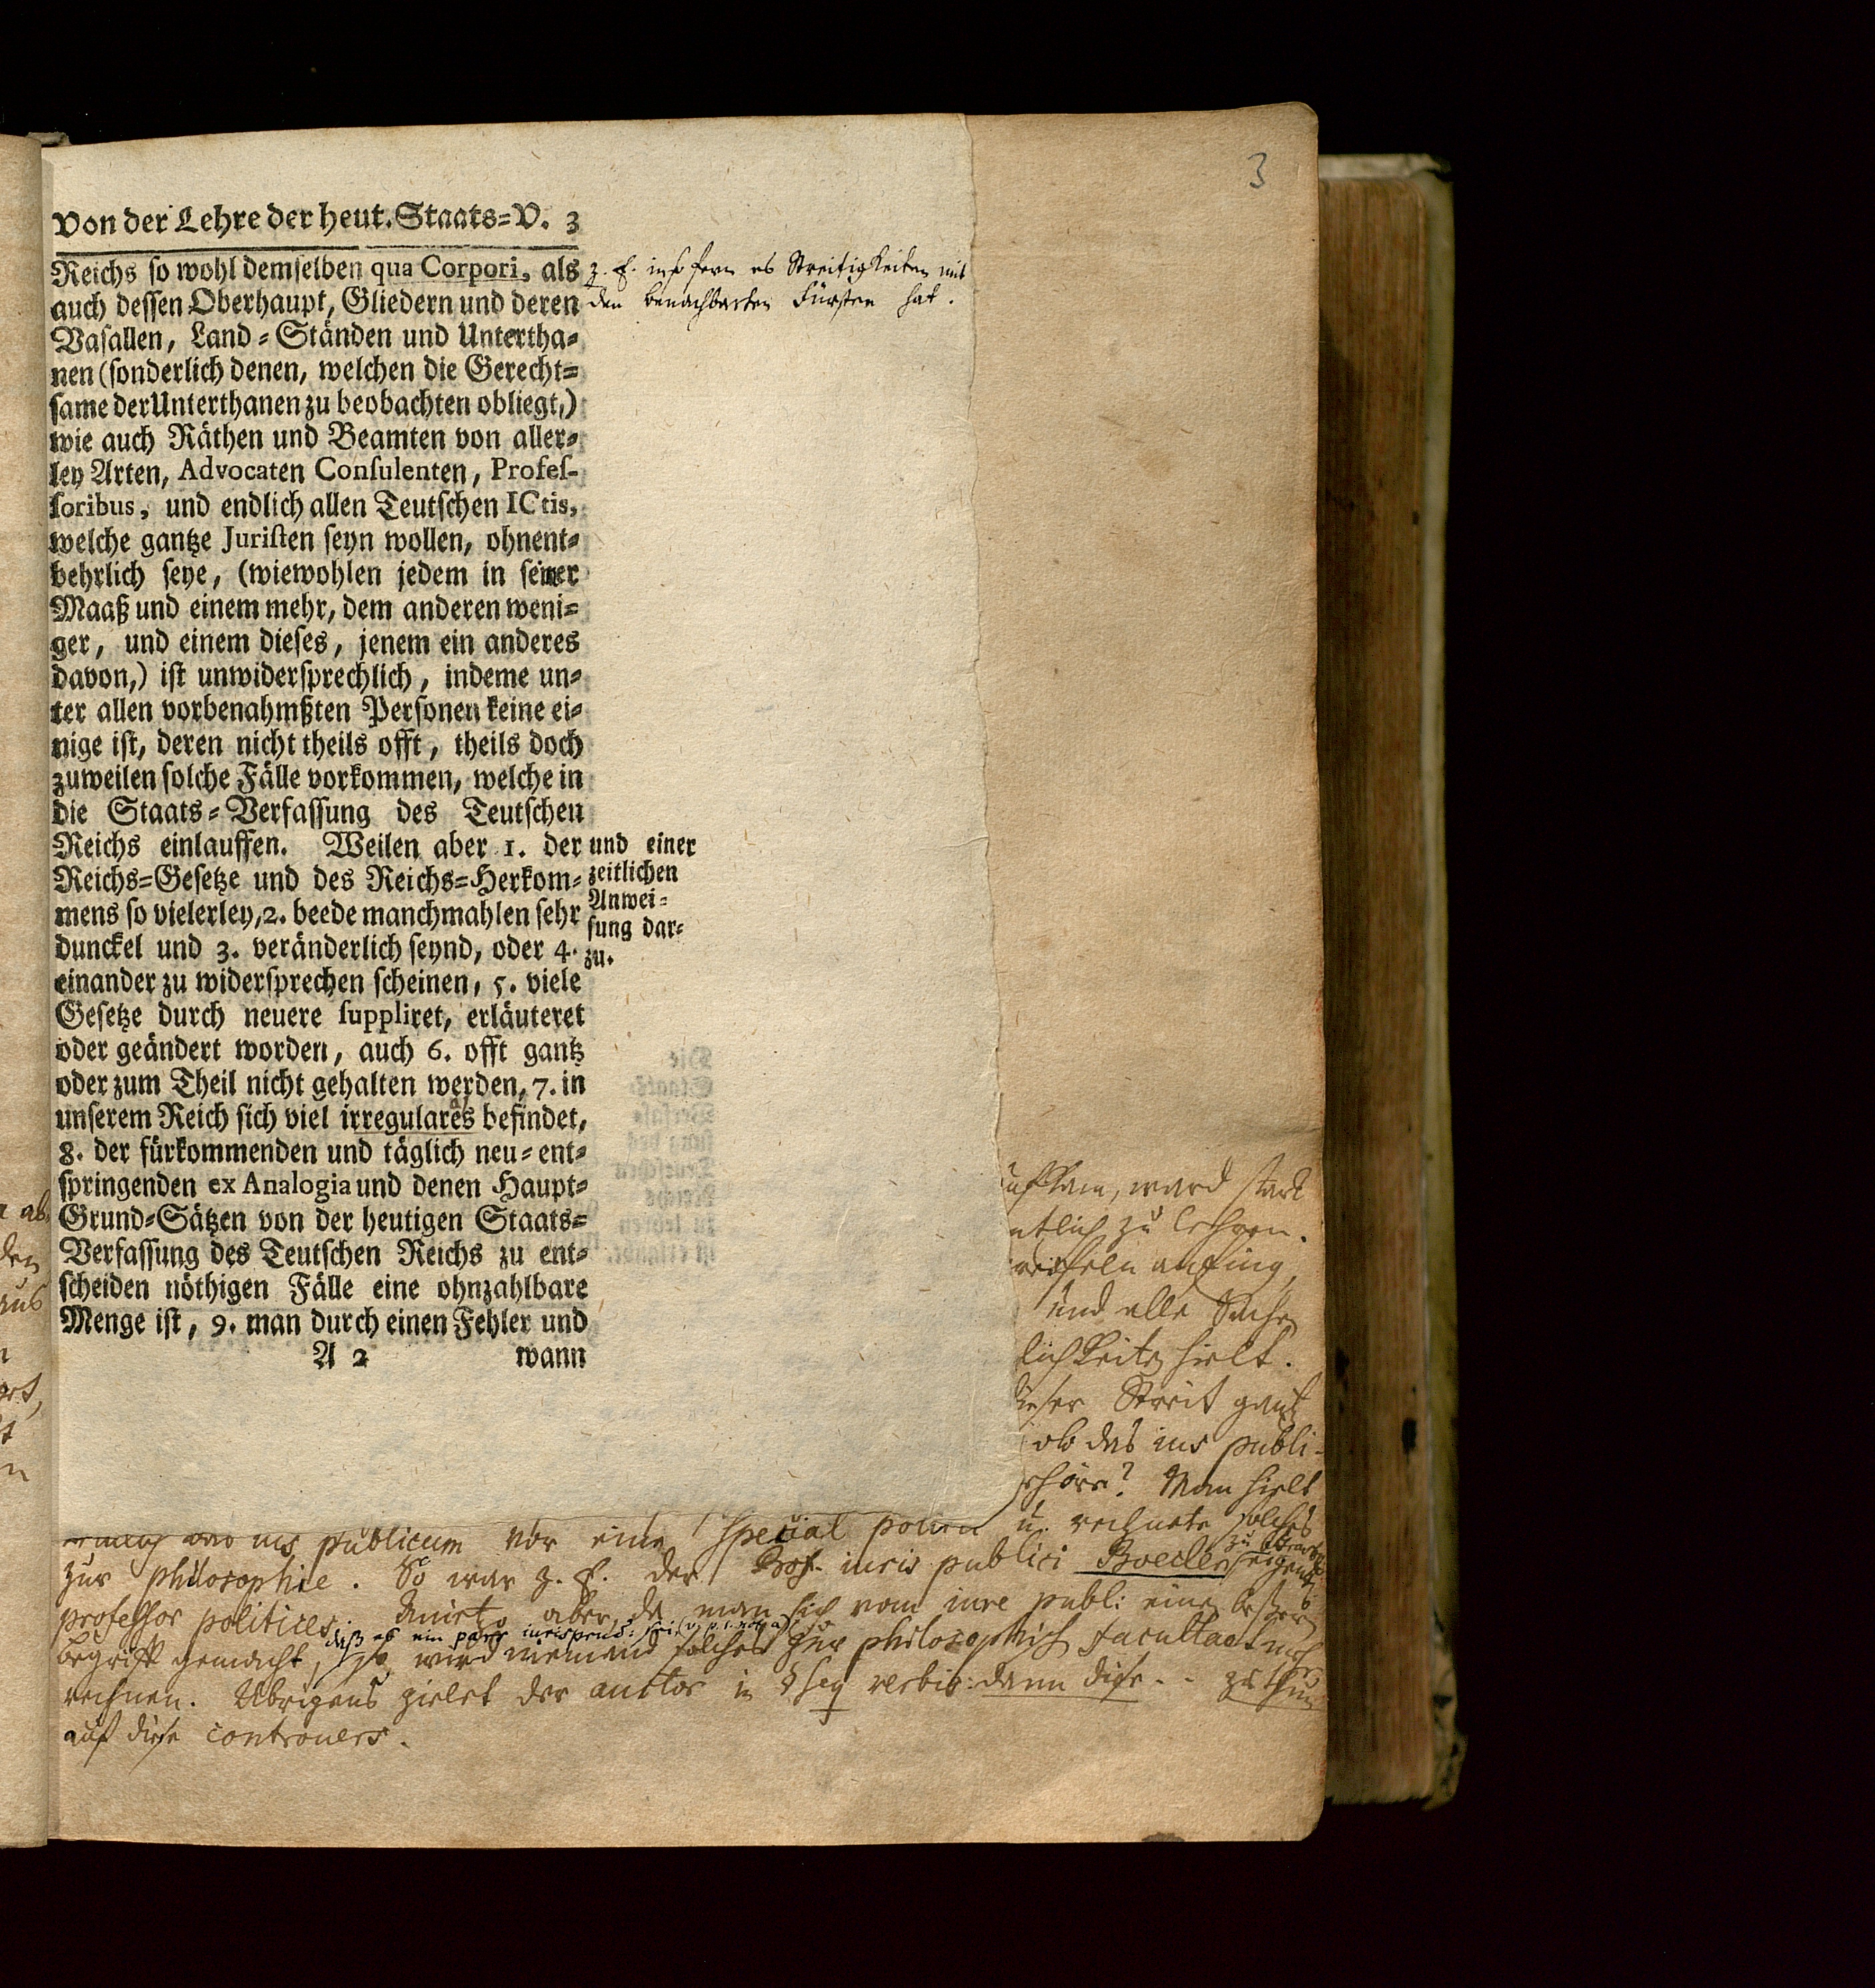 3
Von der Lehre der heut. Staats=V. 3
Reichs so wohl demselben qua Corpori, als
auch dessen Oberhaupt, Gliedern und deren
Vasallen, Land=Ständen und Untertha=
nen (sonderlich denen, welchen die Gerecht=
same der Unterthanen zu beobachten obliegt,)
wie auch Räthen und Beamten von aller=
ley Arten, Advocaten Consulenten, Profes-
soribus, und endlich allen Teutschen ICtis,
welche gantze Juristen seyn wollen, ohnent=
behrlich seye, (wiewohlen jedem in seiner
Maaß und einem mehr, dem anderen weni=
ger, und einem dieses, jenem ein anderes
davon,) ist unwidersprechlich, indeme un=
ter allen vorbenahmßten Personen keine ei=
nige ist, deren nicht theils offt, theils doch
zuweilen solche Fälle vorkommen, welche in
die Staats=Verfassung des Teutschen
Reichs einlauffen. Weilen aber 1. der
Reichs=Gesetze und des Reichs=Herkom=
mens so vielerley, 2. beede manchmahlen sehr
dunckel und 3. veränderlich seynd, oder 4.
einander zu widersprechen scheinen, 5. viele
Gesetze durch neuere suppliret, erläuteret
oder geändert worden, auch 6. offt gantz
oder zum Theil nicht gehalten werden, 7. in
unserem Reich sich viel irregulares befindet,
8. der fürkommenden und täglich neu=ent=
springenden ex Analogia und denen Haupt=
Grund=Sätzen von der heutigen Staats=
Verfassung des Teutschen Reichs zu ent=
scheiden nöthigen Fälle eine ohnzahlbare
Menge ist, 9. man durch einen Fehler und
A 2 wann
z. E. in so fern es Streitigkeiten mit
den benachbarten Fürsten hat.
und einer
zeitlichen
Anwei=
sung dar=
zu.
ward stark
ntlich zu lehren.
anfing,
und alle Sachen
lichkeiten hielt.
ieser Streit gantz
ob das ius publi-
ehöre? Man hielt
ius publicum vor eine special u. rechnete solches
zur philosophie. So war z. E. der Prof. iuris publici Boecler eigentl.
professor politices. aber, da man sich vom iure publ: einen beßern
daß es ein pars iurisprud: sei
Begriff gemacht, so wird niemand solches zur philosophisch Facultaet mehr
rechnen. Übrigens zielet der auctor in § seq verbis: dann diese - - zu thun
auf diese controvers.